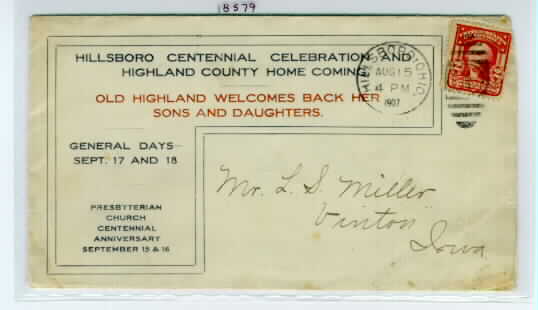 8579
HILLSBORO CENTENNIAL CELEBRATION AND
HIGHLAND COUNTY HOME COMING
OLD HIGHLAND WELCOMES BACK HER
SONS AND DAUGHTERS.
GENERAL DAYS
SEPT. 17 AND 18
PRESBYTERIAN
CHURCH
CENTENNIAL
ANNIVERSARY
SEPTEMBER 15 & 16
HILLSBORO, OHIO.
AUG 15
4 PM
1907
Mr. L. S. Miller
Vinton
Iowa